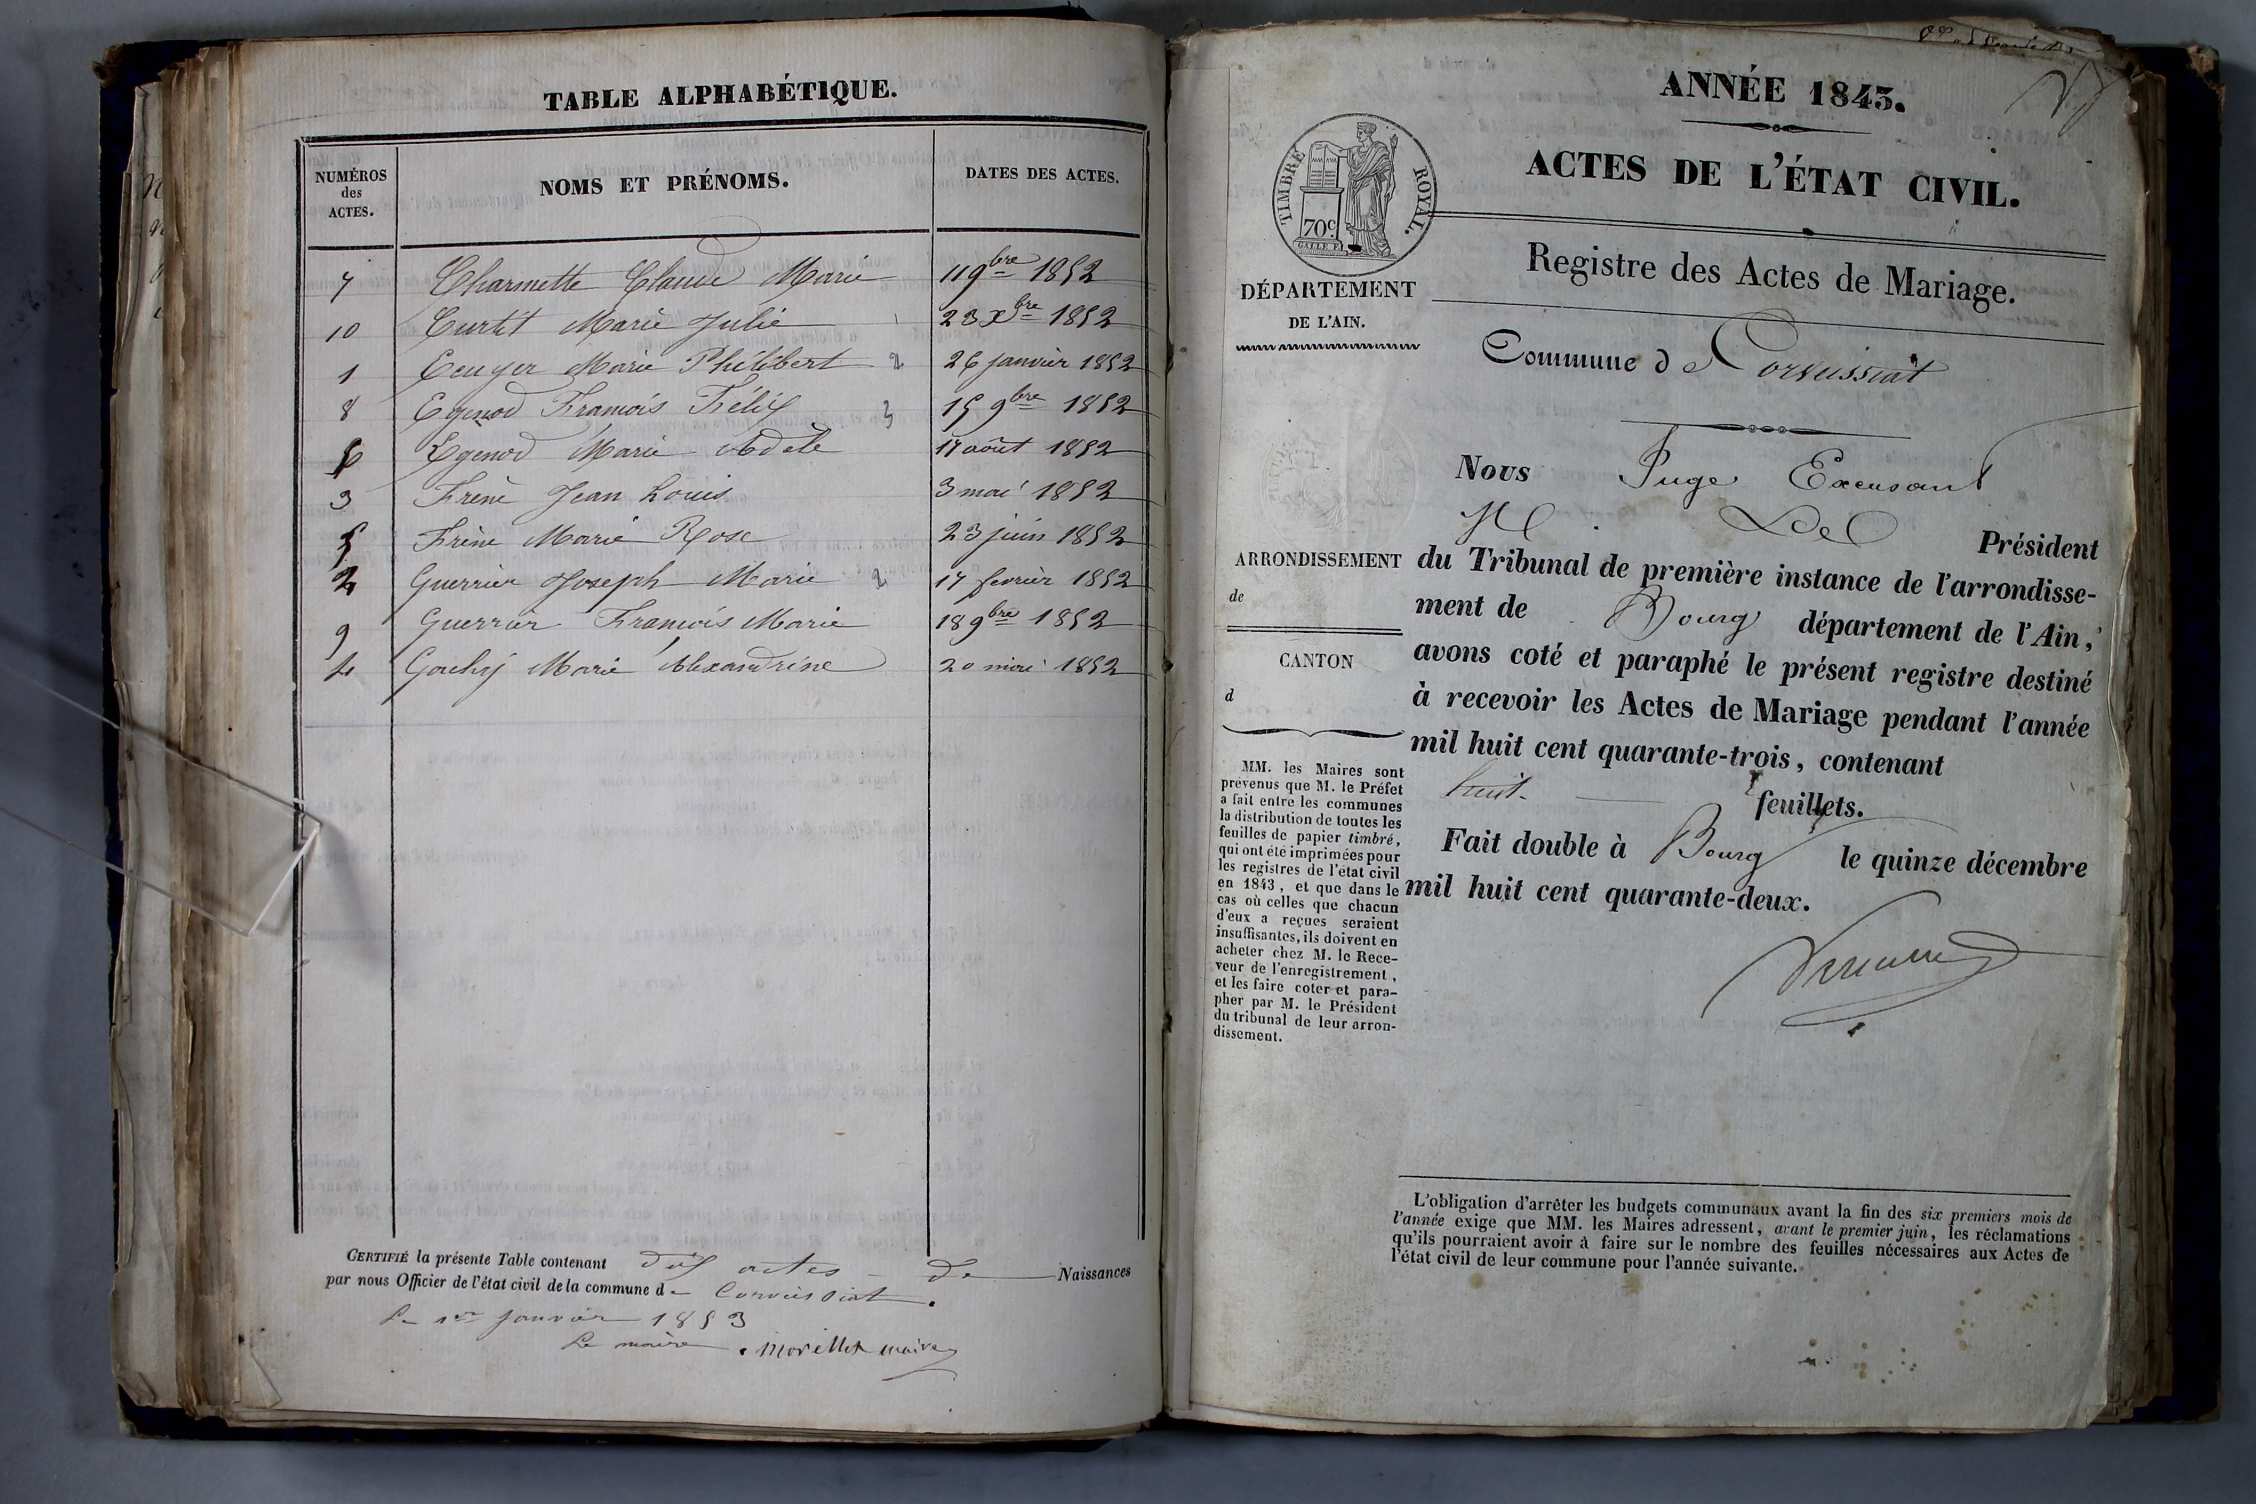 TABLE ALPHABÉTIQUE.
NUMÉROS des ACTES.
NOMS ET PRÉNOMS.
DATES DES ACTES.
7 Charmette Claude Marie 11 9bre 1852
10 Curtit Marie Julie 23 Xbre 1852
1 Ecuyer Marie Philibert 2 26 janvier 1852
8 Egenod François Félix 3 15 9bre 1852
6 Egenod Marie Adele 17 août 1852
3 Frène Jean Louis 3 mai 1852
5 Frène Marie Rose 23 juin 1852
2 Guerrier Joseph Marie 2 17 fevrier 1852
9 Guerrier François Marie 18 9bre 1852
4 Gouhy Marie Alexandrine 20 mai 1852
CERTIFIÉ la présente Table contenant dix actes de Naissances
par nous Officier de l'état civil de la commune de Corveissiat.
Le 1er janvier 1853
Le maire Morellet maire
ANNÉE 1843.
ACTES DE L'ÉTAT CIVIL.
TIMBRE ROYAL.
70c.
Registre des Actes de Mariage.
DÉPARTEMENT
DE L'AIN.
Commune d Corveissiat
Nous Juge Excusant
M. Le Président
ARRONDISSEMENT
de
CANTON
d
du Tribunal de première instance de l'arrondisse-
ment de Bourg département de l'Ain,
avons coté et paraphé le présent registre destiné
à recevoir les Actes de Mariage pendant l'année
mil huit cent quarante-trois, contenant
huit feuillets.
Fait double à Bourg le quinze décembre
mil huit cent quarante-deux.
MM. les Maires sont
prévenus que M. le Préfet
a fait entre les communes
la distribution de toutes les
feuilles de papier timbré,
qui ont été imprimées pour
les registres de l'état civil
en 1843, et que dans le
cas où celles que chacun
d'eux a reçues seraient
insuffisantes, ils doivent en
acheter chez M. le Rece-
veur de l'enregistrement,
et les faire coter et para-
pher par M. le Président
du tribunal de leur arron-
dissement.
L'obligation d'arrêter les budgets communaux avant la fin des six premiers mois de
l'année exige que MM. les Maires adressent, avant le premier juin, les réclamations
qu'ils pourraient avoir à faire sur le nombre des feuilles nécessaires aux Actes de
l'état civil de leur commune pour l'année suivante.